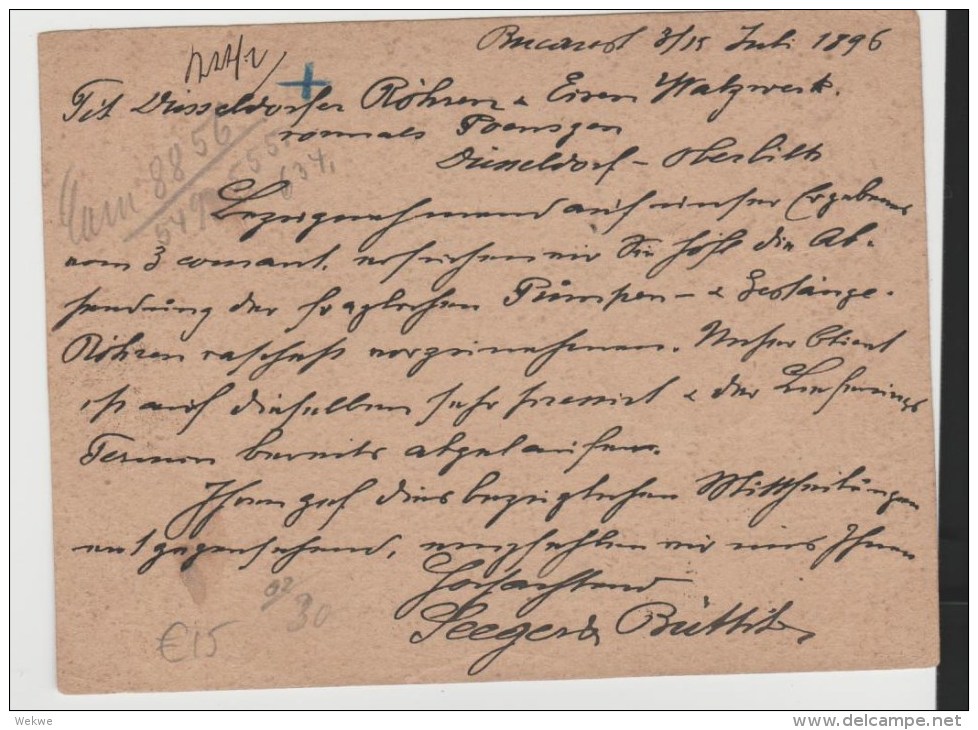 Bucarest 3/15 Juli 1896
Tit Düsseldorfer Röhren & Eisen Walzwerk.
vormals Poensgen
Düsseldorf - Oberbilk
Bezugnehmend auf unser Ergebenes
vom 3 courant. ersuchen wir Sie höfl die Ab-
sendung der fraglichen Pumpen- & Gestänge-
Röhren raschest vorzunehmen. Unser Client
ist auf dieselben sehr pressirt & der Lieferungs
Termin bereits abgelaufen.
Ihren gef diesbezüglichen Mittheilungen
entgegensehend, empfehlen wir uns Ihnen
Hochachtend
Seeger &
8856
634.
30
€15
Wekwe
www.delcampe.net